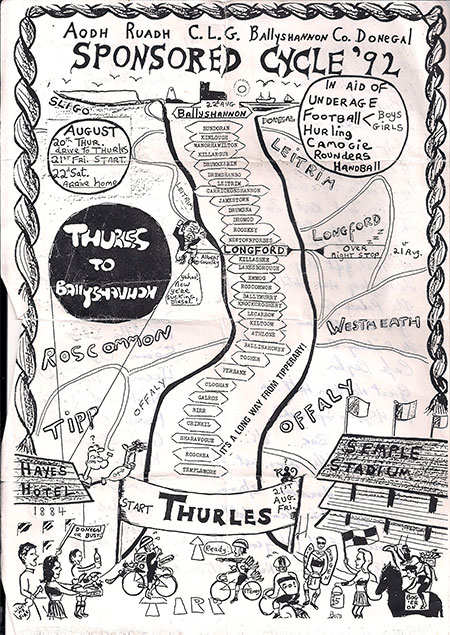 AODH RUADH C.L.G. BALLYSHANNON CO. DONEGAL
SPONSORED CYCLE '92
SLIGO
22nd AUG
BALLYSHANNON
DONEGAL
AUGUST
20th THUR.
drive to THURLES
21st FRI. START.
22nd SAT.
Arrive home
IN AID OF
UNDERAGE
FOOTBALL
BOYS
GIRLS
HURLING
CAMOGIE
ROUNDERS
HANDBALL
BUNDORAN
KINLOUGH
MANORHAMILTON
KILLARGUE
DRUMKEERIN
DRUMSHANBO
LEITRIM
CARRICKONSHANNON
JAMESTOWN
DRUMSNA
DROMOD
ROOSKEY
NEWTOWNFORBES
LONGFORD
KILLASHEE
LANESBOROUGH
ROSCOMMON
BALLYMURRY
KNOCKCROGHERY
LECARROW
KILTOOM
ATHLONE
BALLINAHOWE
TOGHER
FERBANE
CLOGHAN
GALROS
BIRR
CRINKIL
SHARAVOGUE
ROSCREA
TEMPLEMORE
LEITRIM
LEITRIM
LONGFORD
OVER
NIGHT STOP
21st AUG.
THURLES
TO
BALLYSHANNON
yahoo!
Now
ye're
sucking
Diesel!
ROSCOMMON
WESTMEATH
OFFALY
OFFALY
IT'S A LONG WAY FROM TIPPERARY!
TIPP
HAYES
HOTEL
1884
SEMPLE
STADIUM
START THURLES
21st
AUG.
FRI.
DONEGAL
OR BUST.
Ready..
GO!
TIPP
15